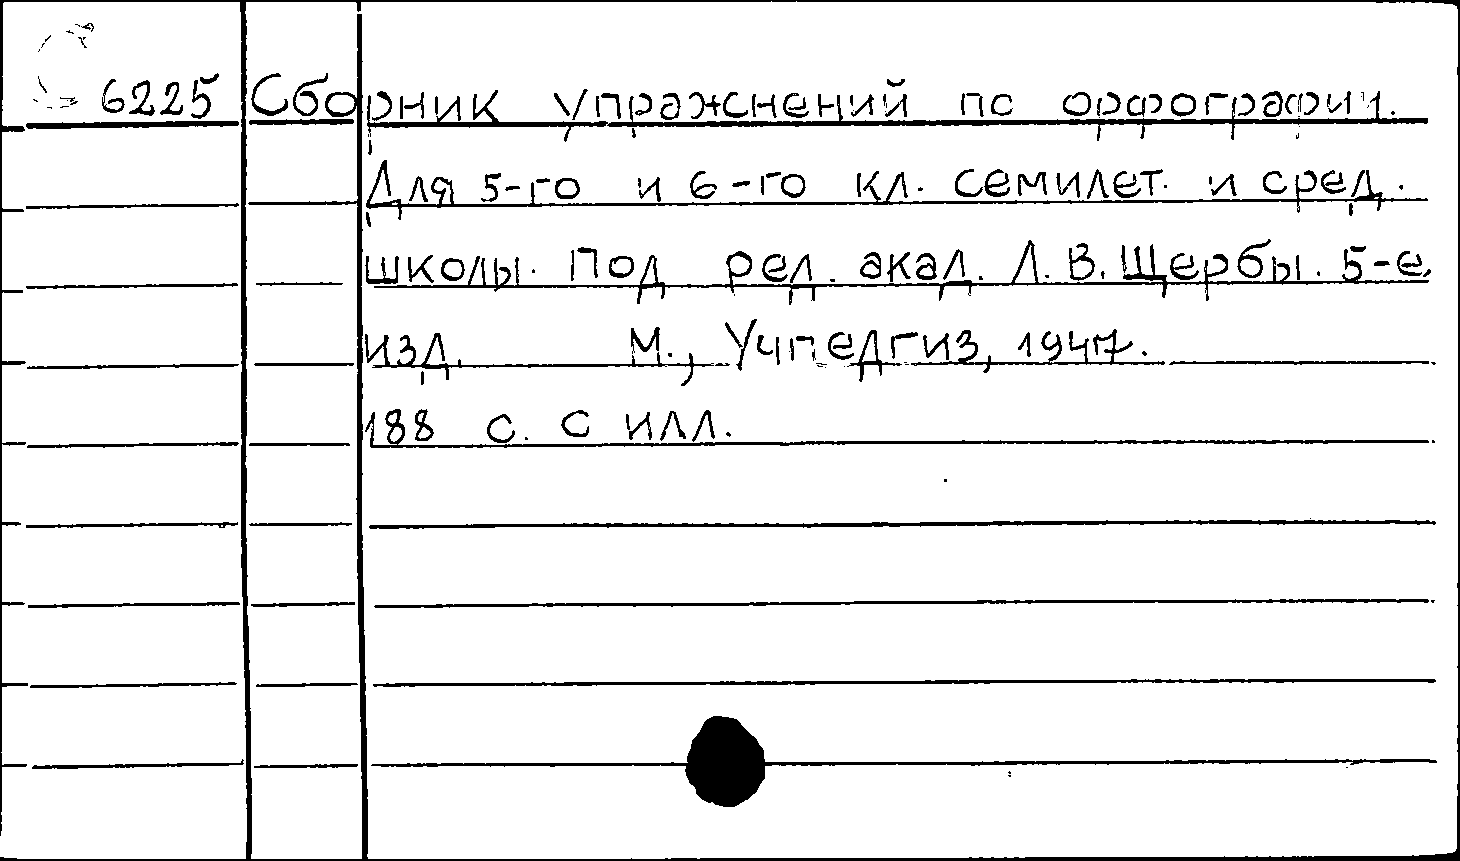 6225 Сборник упражнений по орфографии.
Для 5-го и 6-го кл. семилет. и сред.
школы. Под ред. акад. Л. В. Щербы. 5-е.
изд. М., Учпедгиз, 1947.
188 с. с илл.